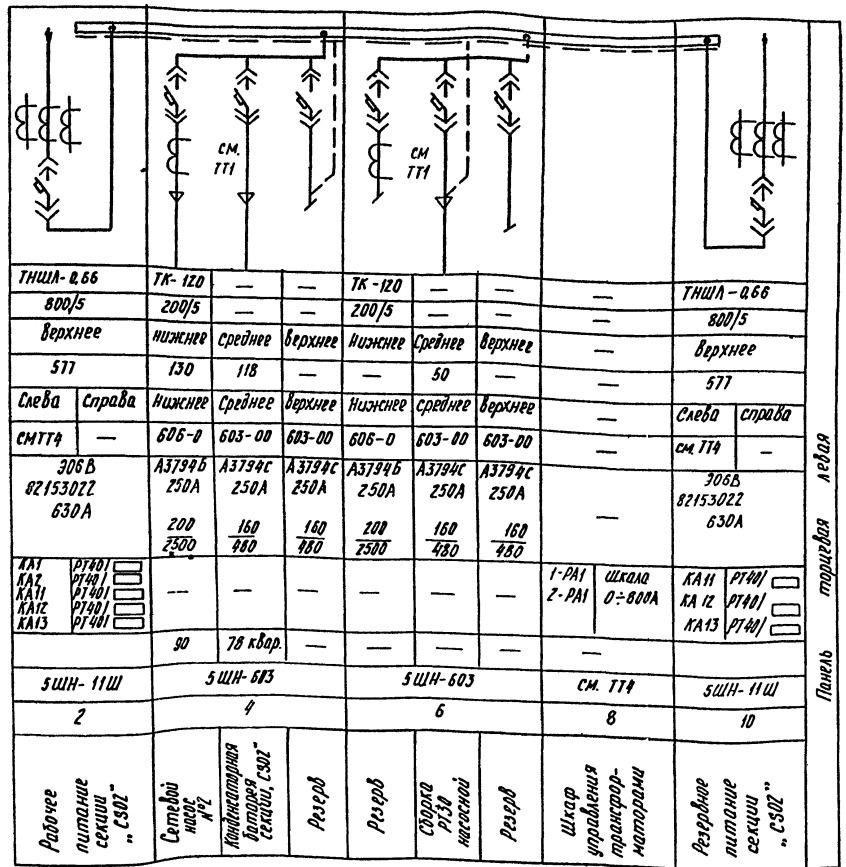 см. ТТ1
см ТТ1
ТНШЛ-0,66 ТК-120 — — ТК-120 — — — ТНШЛ-0,66
800/5 200/5 — — 200/5 — — — 800/5
верхнее нижнее среднее верхнее нижнее среднее верхнее — верхнее
577 130 118 — — 50 — — 577
Слева справа нижнее среднее верхнее нижнее среднее верхнее — слева справа
смТТ4 — 606-0 603-00 603-00 606-0 603-00 603-00 — см. ТТ4 —
Э06В А3794Б А3794С А3794С А3794Б А3794С А3794С Э06В
82153022 250А 250А 250А 250А 250А 250А — 82153022
630А 200/2500 160/480 160/480 200/2500 160/480 160/480 630А
КА1 РТ40/
КА2 РТ40/
КА11 РТ40/
КА12 РТ40/
КА13 РТ40/
— — — — — —
1-РА1 шкала
2-РА1 0÷800А
КА11 РТ40/
КА12 РТ40/
КА13 РТ40/
90 78 квар. — — — — —
5ШН-11Ш 5ШН-603 5ШН-603 см. ТТ4 5ШН-11Ш
2 4 6 8 10
Рабочее
питание
секции
„CS02"
Сетевой
насос
№2
Конденсаторная
батарея
секции„CS02"
Резерв
Резерв
Сборка
РТ30
насосной
Резерв
Шкаф
управления
трансфор-
маторами
Резервное
питание
секции
„CS02"
Панель торцевая левая